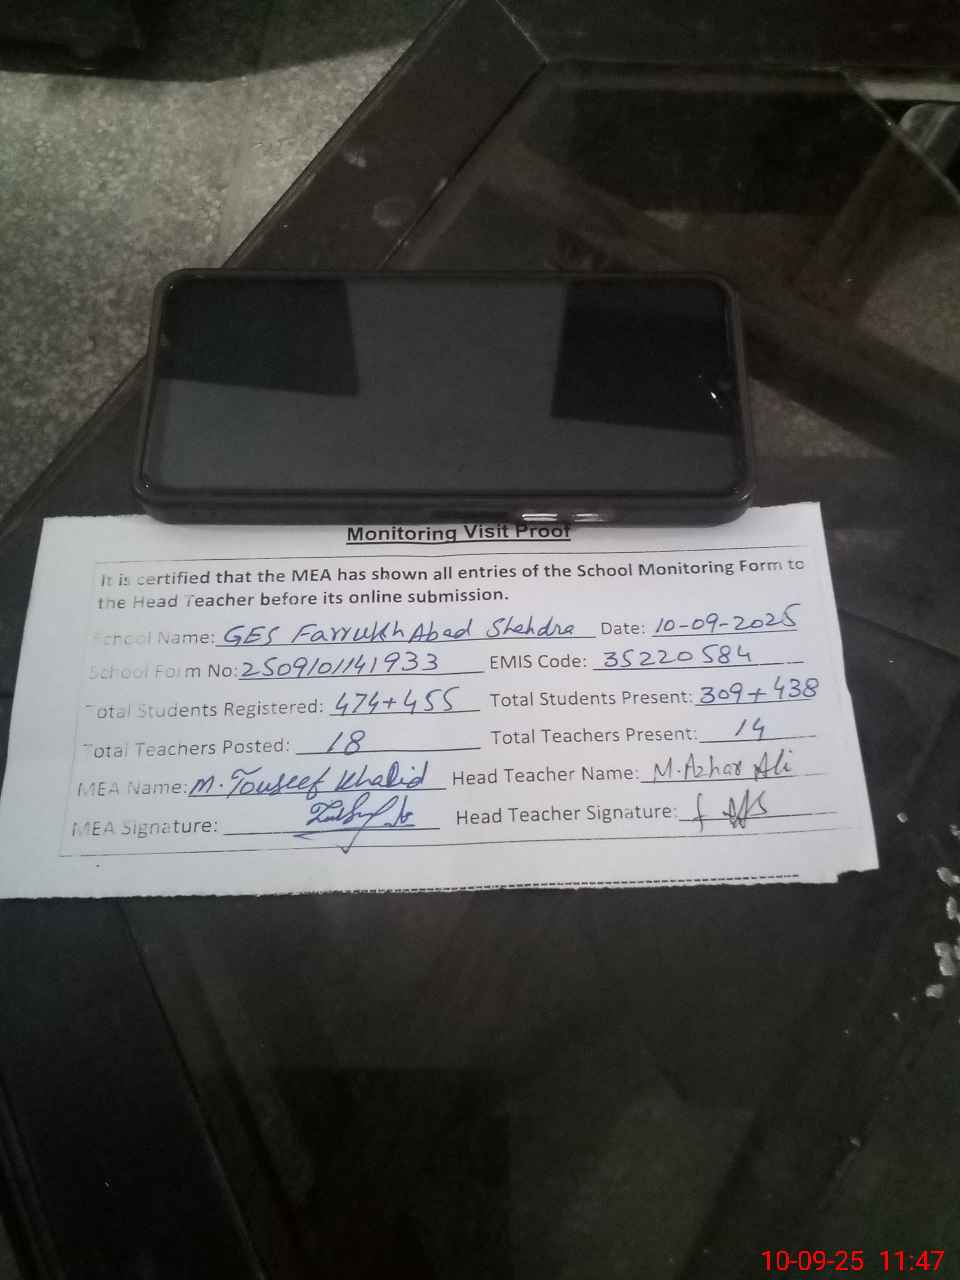 Monitoring Visit Proof
It is certified that the MEA has shown all entries of the School Monitoring Form to
the Head Teacher before its online submission.
School Name: GES Farrukh Abad Shahdra Date: 10-09-2025
School Form No: 2509101141933 EMIS Code: 35220584
Total Students Registered: 474+455 Total Students Present: 309+438
Total Teachers Posted: 18 Total Teachers Present: 14
MEA Name: M. Touseef Khalid Head Teacher Name: M. Azhar Ali
MEA Signature: Head Teacher Signature:
10-09-25 11:47